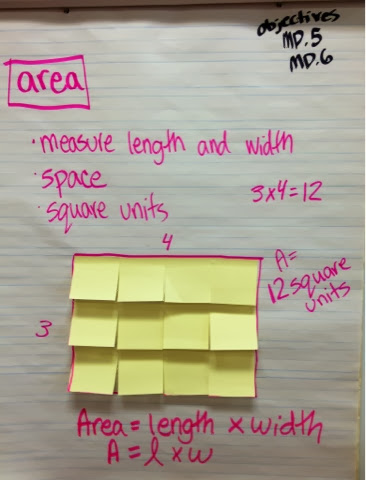 objectives
MD.5
MD.6
area
· measure length and width
· space
· square units
3x4=12
4
3
A=
12 square
units
Area = length x width
A = l x w